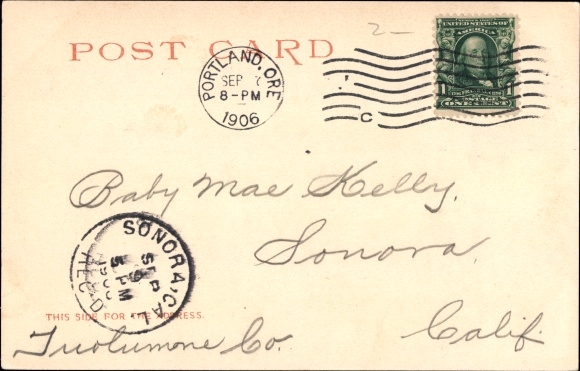 2-
POST CARD
PORTLAND, ORE
SEP 7
8-PM
1906
C
UNITED STATES OF
AMERICA
1 1
POSTAGE
ONE CENT
Baby Mae Kelly.
Sonora.
SONORA, CAL
SEP
9
5 PM
1906
REC'D
THIS SIDE FOR THE ADDRESS.
Tuolumone Co. Calif.